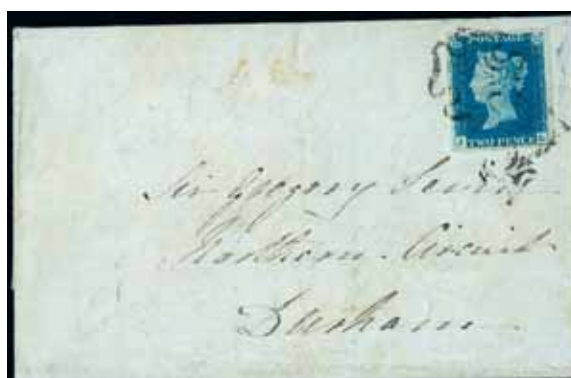 POSTAGE
TWO PENCE
Sir Gregory
Northern Circuit
Durham